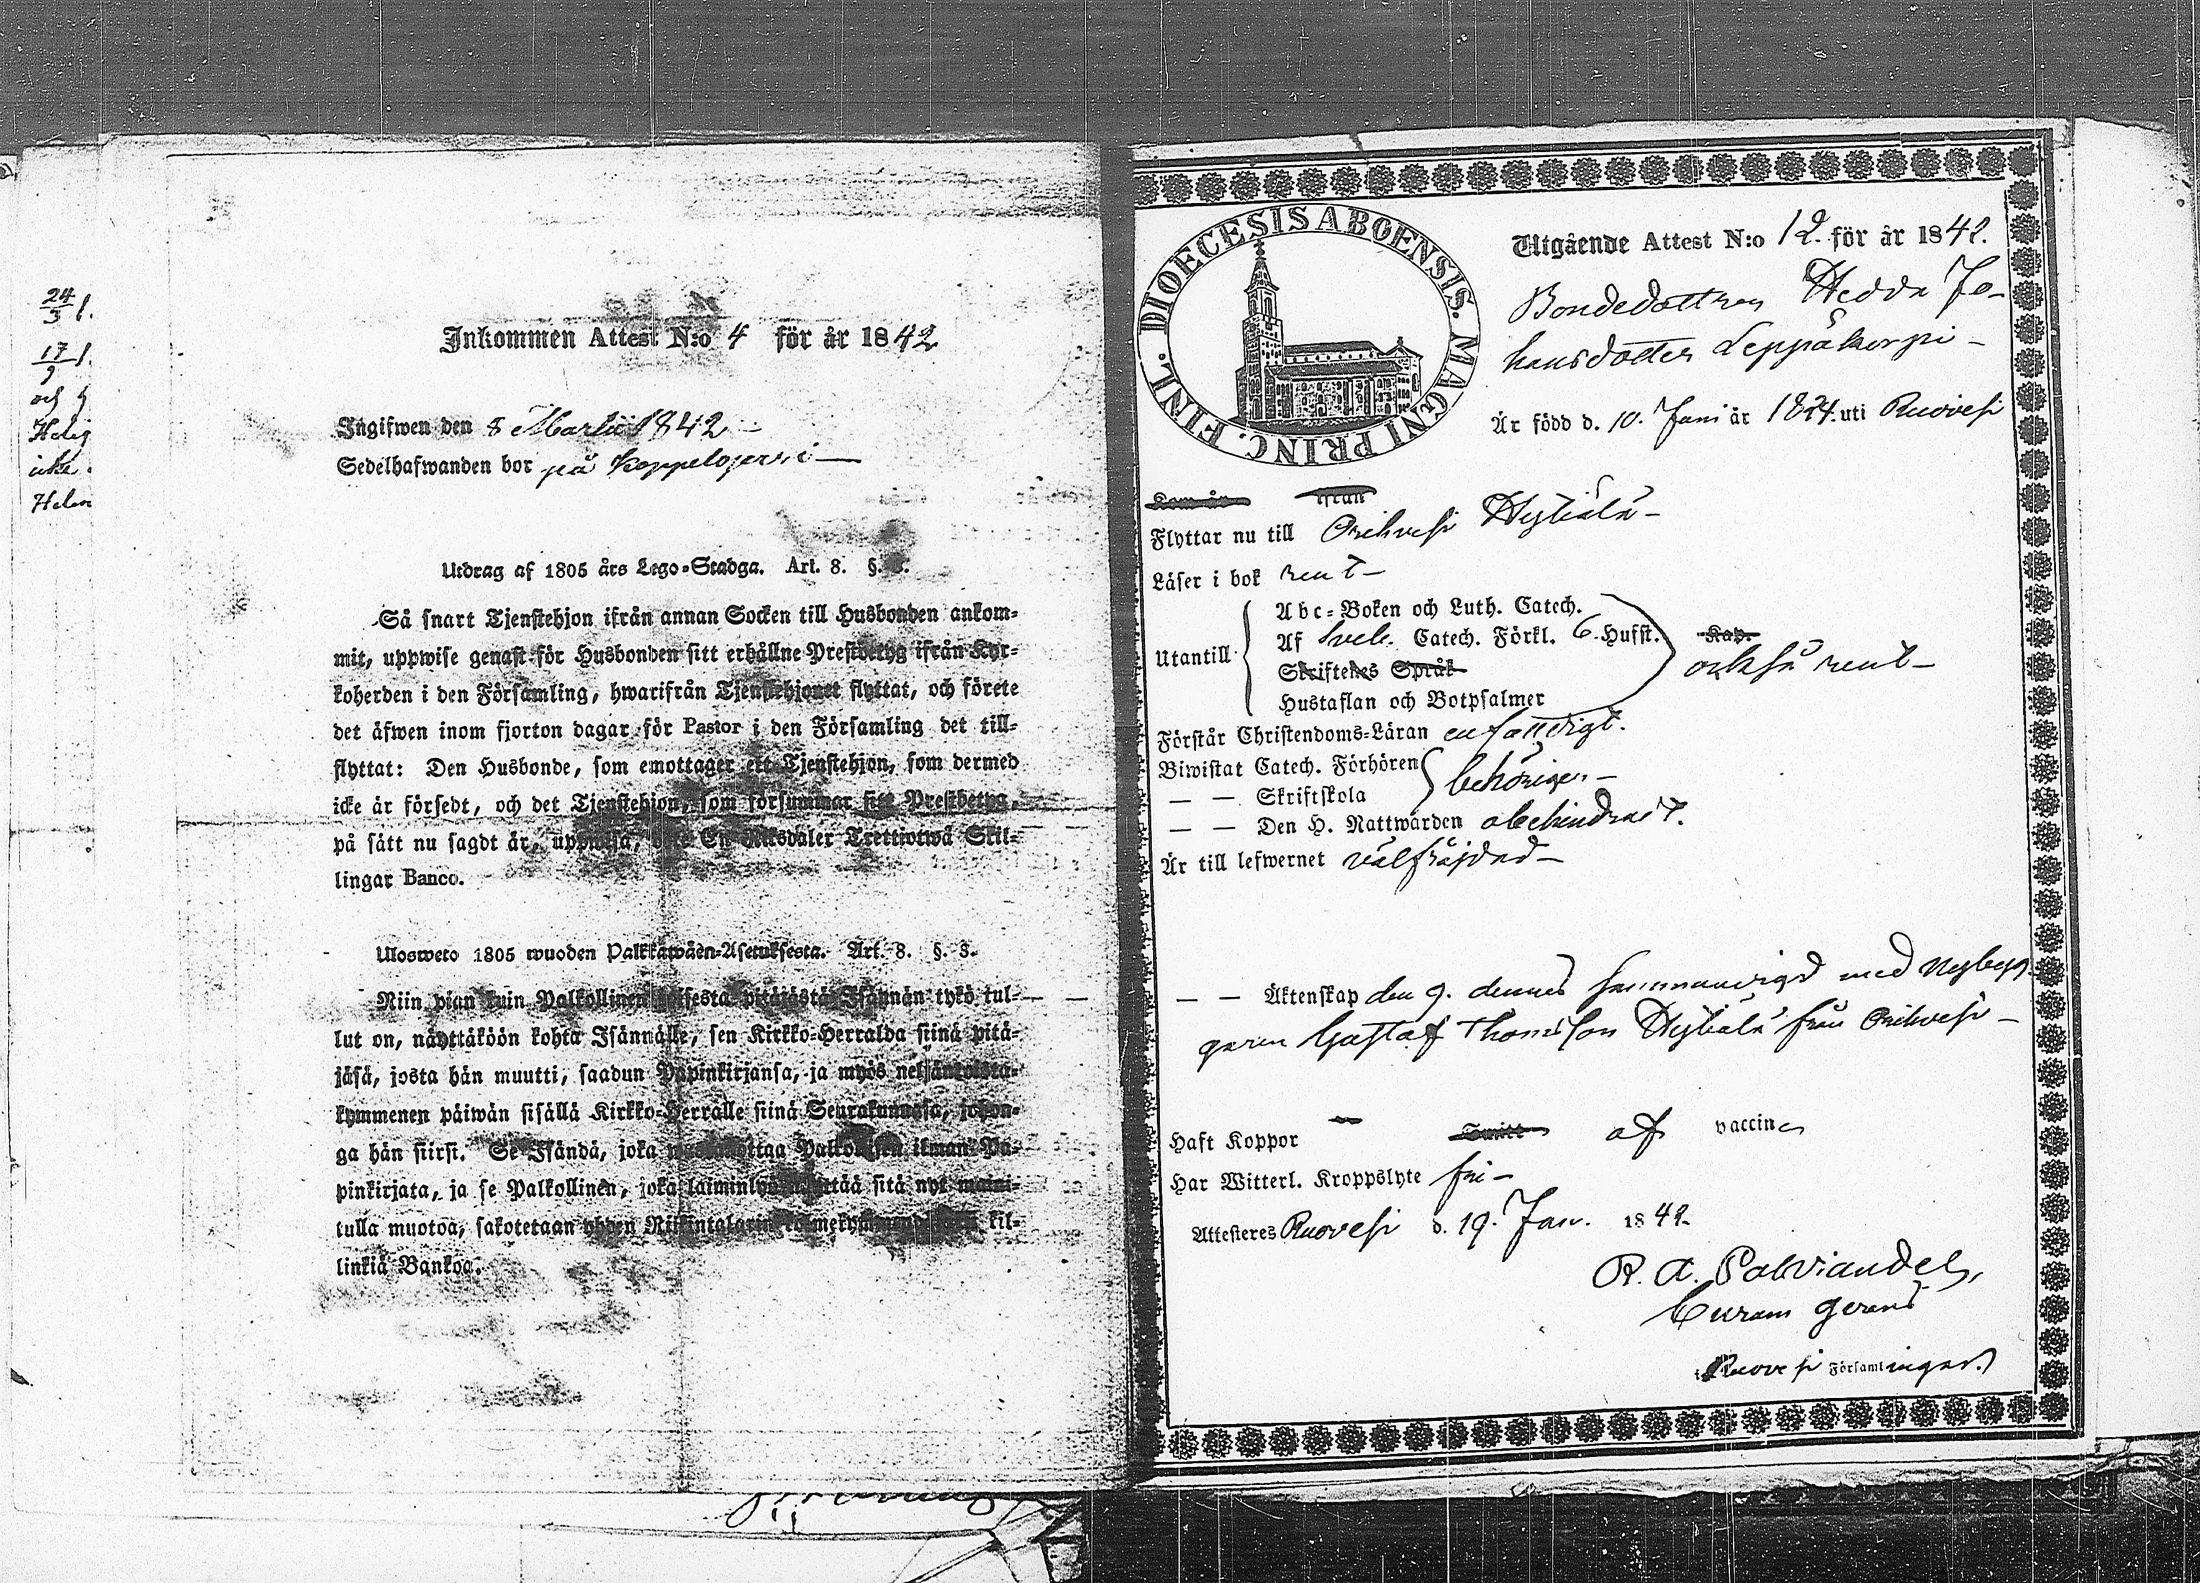 24/3
17/9
och
Helig
icke
Helen
Inkommen Attest N:o 4 för år 1842
Ingifwen den 8 Martii 1842
Sedelhafwanden bor på Koppelojerwi
Utdrag af 1805 års Lego-Stadga. Art. 8. §.
Så snart Tjenstehjon ifrån annan Socken till Husbonden ankom-
mit, uppwise genast för Husbonden sitt erhållne Prestbetyg ifrån Kyr-
koherden i den Församling, hwarifrån Tjenstehjonet flyttat, och förete
det äfwen inom fjorton dagar för Pastor i den Församling det till-
flyttat: Den Husbonde, som emottager ett Tjenstehjon, som dermed
icke är försedt, och det Tjenstehjon, som försummar sitt Prestbetyg,
på sätt nu sagdt är, uppwisa, böte En Riksdaler Trettiotwå Skil-
lingar Banco.
Ulosweto 1805 wuoden Palkkawäen-Asetuksesta. Art. 8. §. 3.
Niin pian kuin Palkollinen toisesta pitäjästä Isännän tykö tul-
lut on, näyttäköön kohta Isännälle, sen Kirkko-Herralda siinä pitä-
jäsä, josta hän muutti, saadun Papinkirjansa, ja myös neljäntoista-
kymmenen päiwän sisällä Kirkko-Herralle siinä Seurakunnasa, johon-
ga hän siirsi. Se Isändä, joka wastaanottaa Palkollisen ilman Pa-
pinkirjata, ja se Palkollinen, joka laiminlyö näyttää sitä nyt maini-
tulla muotoa, sakotetaan yhden Riksintalarin kolmekymmendä kil-
linkiä Bankoa.
DIOECESIS ABOENSIS. MAGNI PRINC. FINL.
Utgående Attest N:o 12. för år 1842.
Bondedottren Hedda Jo-
hansdotter Leppäkorpi
Är född d. 10. Juni år 1824. uti Ruovesi
Kom år ifrån
Flyttar nu till Orihvesi Hyliälä
Läser i bok rent
Utantill
Abc-Boken och Luth. Catech.
Af Sveb. Catech. Förkl. 6. Hufst. Kap.
Skriftenes Språk
också rent
Hustaflan och Botpsalmer
Förstår Christendoms-Läran enfaldigt.
Biwistat Catech. Förhören
behörigen
— — Skriftskola
— — Den H. Nattwarden obehindrat.
Är till lefwernet välfräjdad
— — Äktenskap den 9. dennes sammanvigd med Nybyg-
garen Gustaf Thomsson Hyliälä från Orihvesi
Haft Koppor Smitt af vaccine
Har Witterl. Kroppslyte fri
Attesteres Ruovesi d. 19. Jan. 1842
R. A. Palviander,
Curam gerens
i Ruovesi Församlingar.